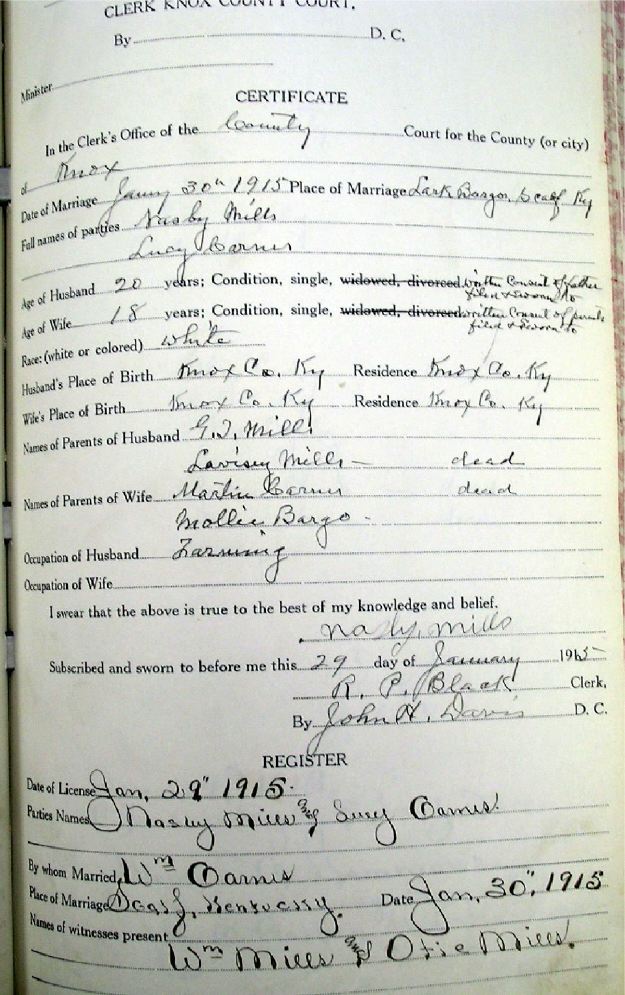 CLERK KNOX COUNTY COURT.
By D. C.
Minister
CERTIFICATE
In the Clerk's Office of the County Court for the County (or city)
of Knox
Date of Marriage Janry 30th 1915 Place of Marriage Lark Bargo, Scalf Ky
Full names of parties Nasby Mills
Lucy Carnes
Age of Husband 20 years; Condition, single, widowed, divorced written Consent of father
filed & sworn to
Age of Wife 18 years; Condition, single, widowed, divorced written Consent of parents
filed & sworn to
Race: (white or colored) white
Husband's Place of Birth Knox Co. Ky Residence Knox Co. Ky
Wife's Place of Birth Knox Co. Ky Residence Knox Co. Ky
Names of Parents of Husband G. J. Mills
Lavisey Mills — dead
Names of Parents of Wife Martin Carnes dead
Mollie Bargo -
Occupation of Husband Farming
Occupation of Wife
I swear that the above is true to the best of my knowledge and belief.
Nasby Mills
Subscribed and sworn to before me this 29 day of January 1915
R. P. Black Clerk,
By John H. Davis D. C.
REGISTER
Date of License Jan, 29" 1915.
Parties Names Nasby Mills and Lucy Carnes.
By whom Married, Wm Carnes
Place of Marriage Scalf, Kentucky. Date Jan, 30", 1915
Names of witnesses present
Wm Mills and Otie Mills.